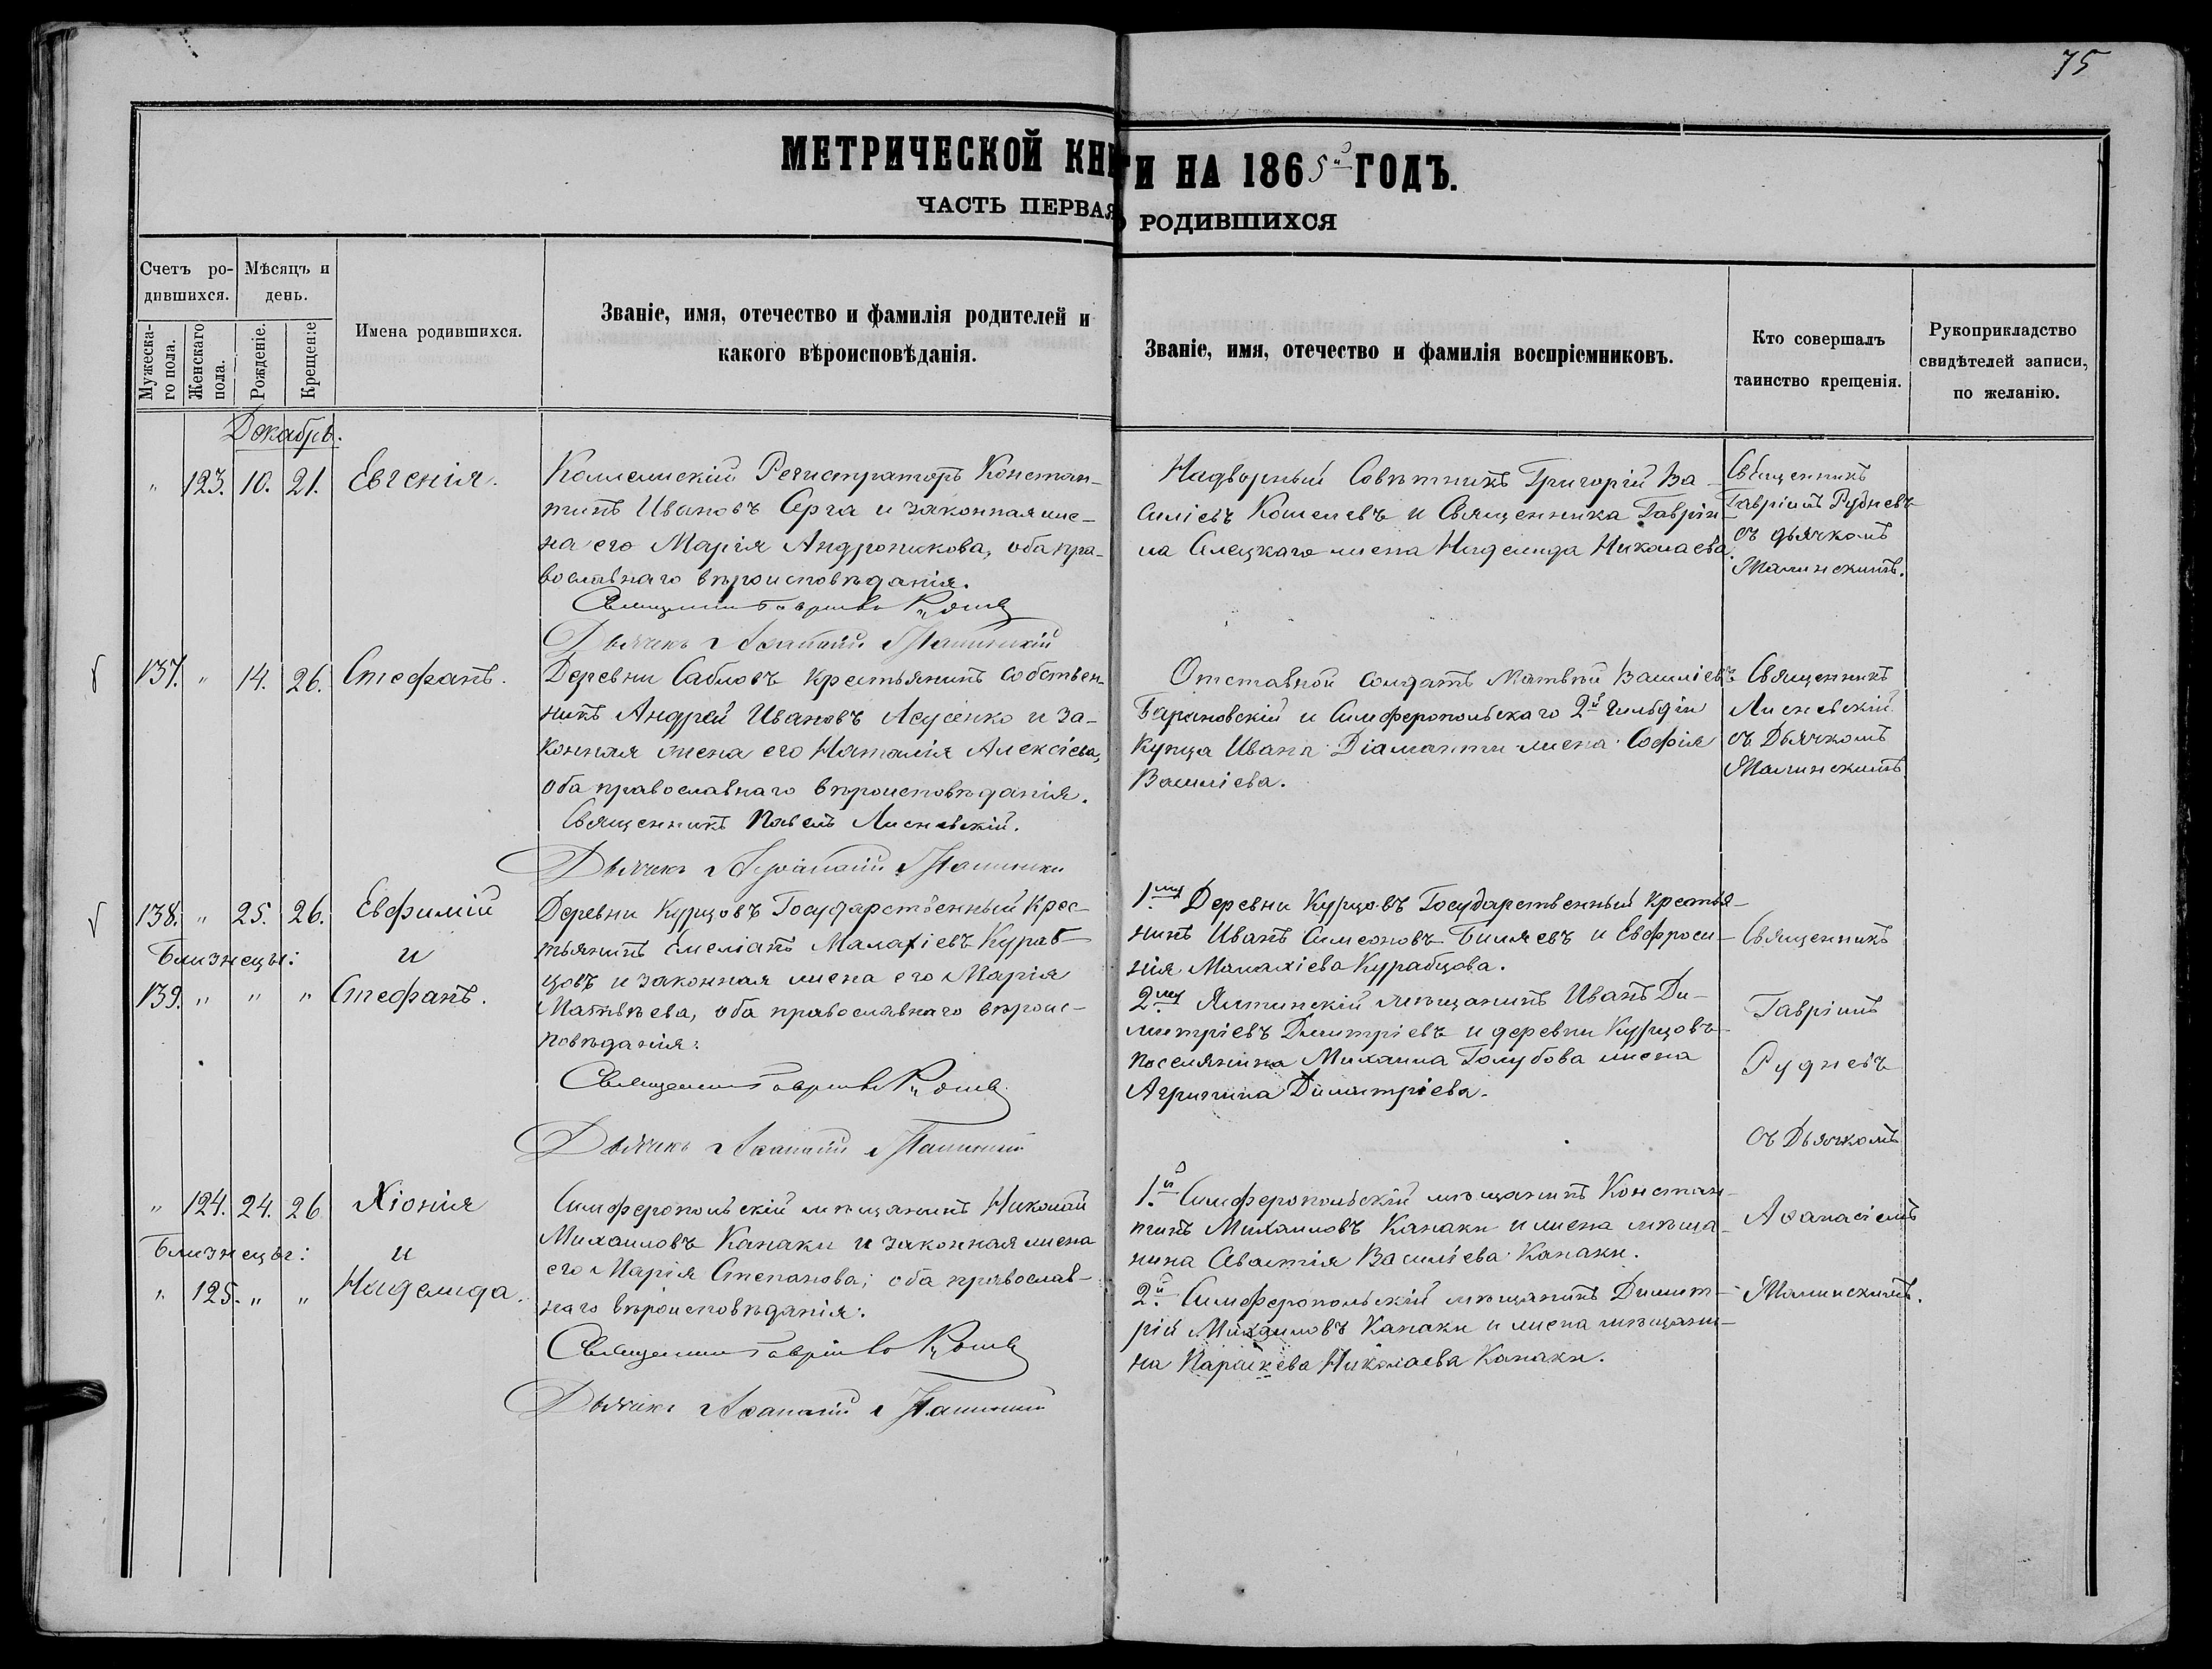 75
МЕТРИЧЕСКОЙ КНИГИ НА 1865й ГОДЪ.
ЧАСТЬ ПЕРВАЯ О РОДИВШИХСЯ
Счетъ ро-
дившихся.
Мужеска-
го пола.
Женскаго
пола.
Мѣсяцъ и
день.
Рожденіе.
Крещеніе
Имена родившихся.
Званіе, имя, отечество и фамилія родителей и
какого вѣроисповѣданія.
Званіе, имя, отечество и фамилія воспріемниковъ.
Кто совершалъ
таинство крещенія.
Рукоприкладство
свидѣтелей записи,
по желанію.
Декабрь.
" 123. 10. 21. Евгенія.
Коллежскій Регистраторъ Констан-
тинъ Ивановъ Серга и законная же-
на его Марія Андроникова, оба пра-
вославнаго вѣроисповѣданія.
Священникъ Гавріилъ Рудневъ
Дьячекъ Афанасій Малинскій
Надворный Совѣтникъ Григорій Ва-
силіевъ Кошелевъ и Священника Гавріи-
ла Селецкаго жена Надежда Николаева.
Священникъ
Гавріилъ Рудневъ
съ дьячкомъ
Малинскимъ.
137. " 14. 26. Стефанъ.
Деревни Сабловъ крестьянинъ собствен-
никъ Андрей Ивановъ Лсусенко и за-
конная жена его Наталія Алексіева,
оба православнаго вѣроисповѣданія.
Священникъ Павелъ Лисневскій.
Дьячекъ Афанасій Малинскій
Отставной солдатъ Матвѣй Василіевъ
Барановскій и Симферопольскаго 2й гильдіи
Купца Ивана Діаманти жена София
Василіева.
Священникъ
Лисневскій
съ Дьячкомъ
Малинскимъ
138. " 25. 26. Евфимій
Близнецы: и
139. " " " Стефанъ.
Деревни Курцовъ Государственный Крес-
тьянинъ Емеліанъ Малахіевъ Кураб-
цовъ и законная жена его Марія
Матвѣева, оба православнаго вѣроис-
повѣданія:
Священникъ Гавріилъ Рудневъ
Дьячекъ Афанасій Малинскій
1.му Деревни Курцовъ Государственный крестья-
нинъ Иванъ Симеоновъ Биляевъ и Евфроси-
нія Малахіева Курабцова.
2.му Ялтинскій мѣщанинъ Иванъ Ди-
митріевъ Димитріевъ и деревни Курцовъ
поселянина Михаила Голубова жена
Агрипина Димитріева.
Священникъ
Гавріилъ
Рудневъ
съ Дьячкомъ
Афанасіемъ
Малинскимъ.
" 124. 24. 26 Хіонія
Близнецы: и
" 125. " " Надежда.
Симферопольскій мѣщанинъ Николай
Михаиловъ Канаки и законная жена
его Марія Степанова; оба православ-
наго вѣроисповѣданія:
Священникъ Гавріилъ Рудневъ
Дьячекъ Афанасій Малинскій
1.й Симферопольскій мѣщанинъ Констан-
тинъ Михаиловъ Канаки и жена мѣща-
нина Севастія Василіева Канаки.
2.й Симферопольскій мѣщанинъ Димит-
рій Михаиловъ Канаки и жена мѣщани-
на Параскева Николаева Канаки.